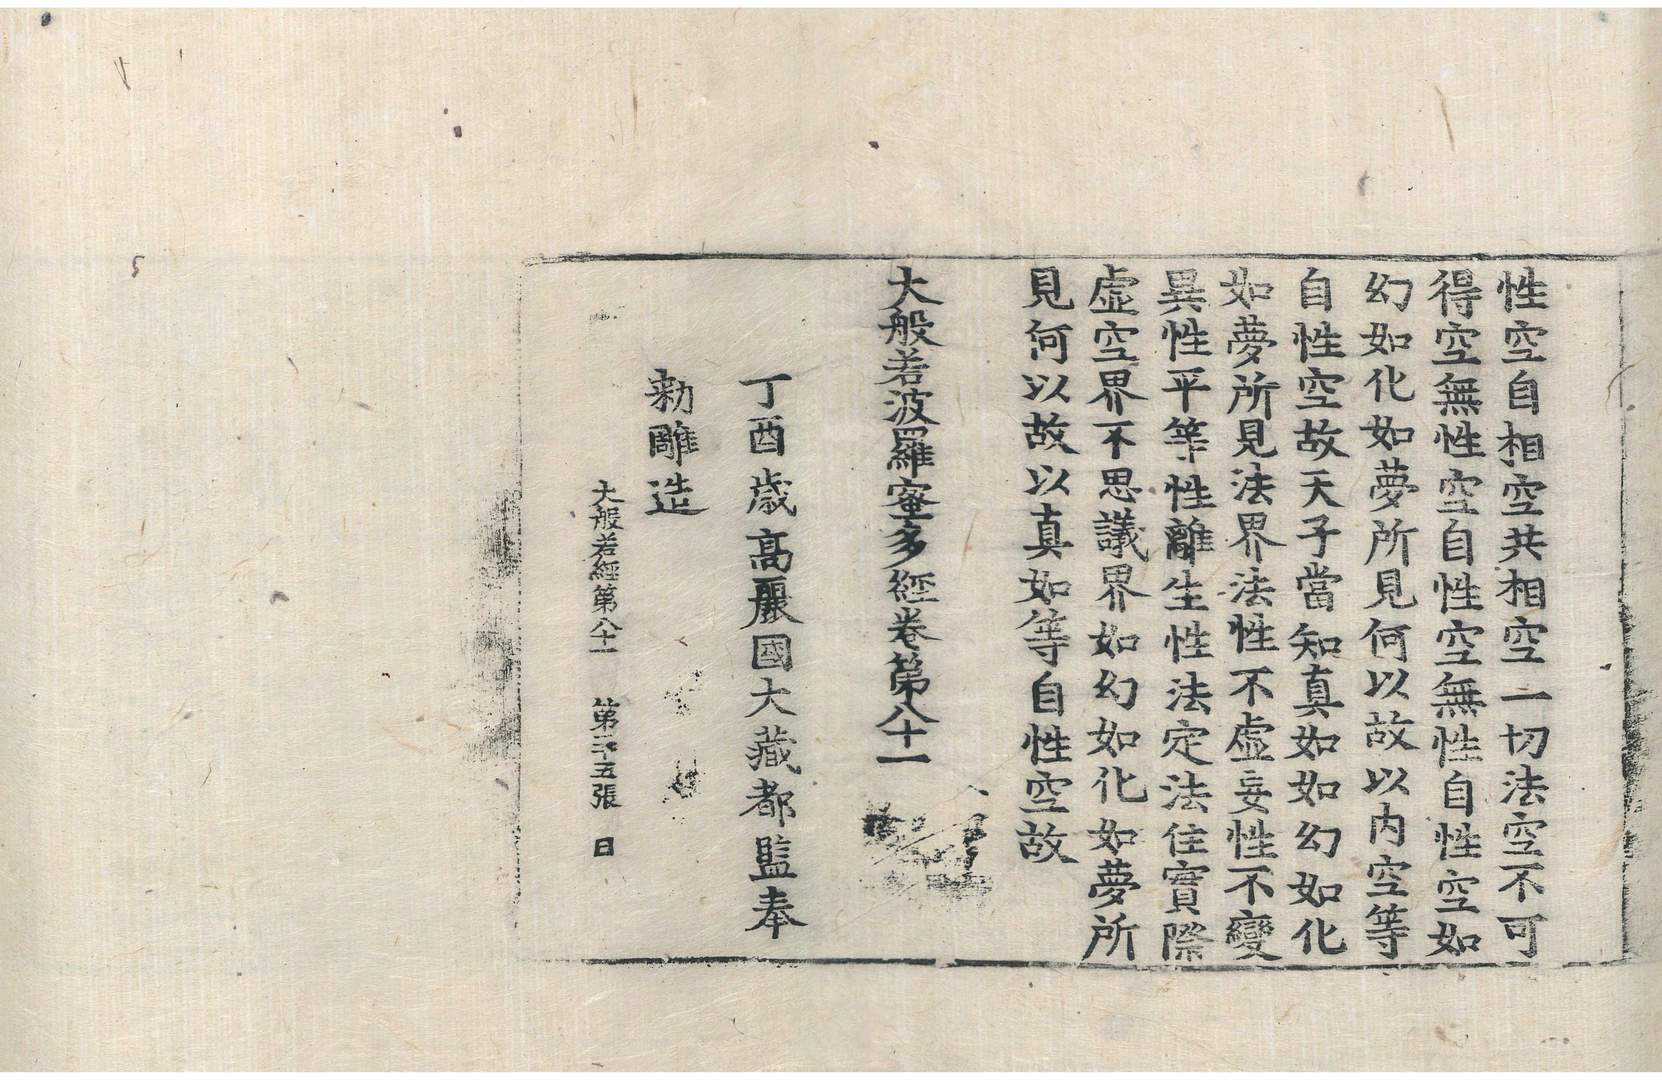 性空自相空共相空一切法空不可
得空無性空自性空無性自性空如
幻如化如夢所見何以故以内空等
自性空故天子當知真如如幻如化
如夢所見法界法性不虛妄性不變
異性平等性離生性法定法住實際
虛空界不思議界如幻如化如夢所
見何以故以真如等自性空故
大般若波羅蜜多經卷第八十一
丁酉歲高麗國大藏都監奉
勑雕造
大般若經第八十一 第二十五張 日